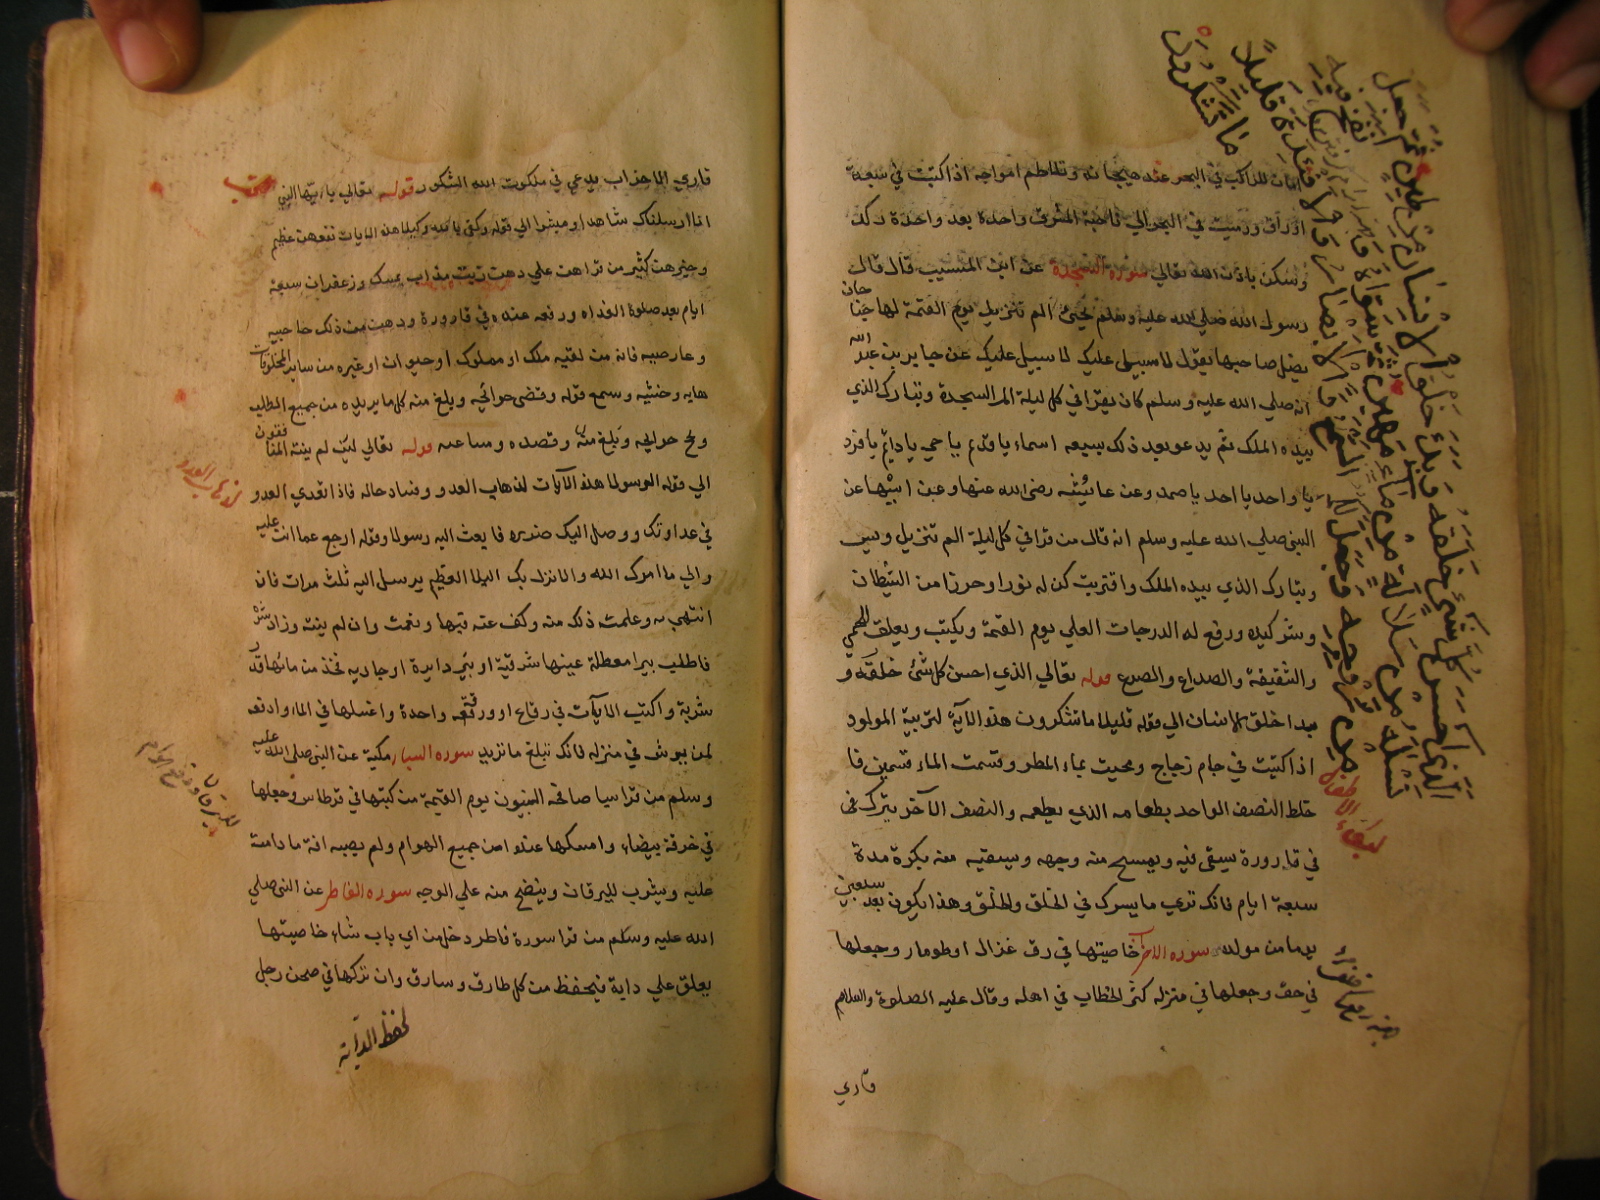 امان للراكب في البحر عند هيجانه وتلاطم امواجه اذا كتبت في سبعة
اوراق ورميت في البحر الي ناحية المشرق واحدة بعد واحدة ركد
وسكن باذن الله تعالي سورة السجدة عن ابن المسيب قال قال
رسول الله صلي الله عليه وسلم تجئ الم تنزيل يوم القيمة لها جناحان
تضل صاحبها تقول لا سبيل عليك لا سبيل عليك عن جابر بن عبد الله
انه صلي الله عليه وسلم كان يقرا في كل ليلة الم السجدة وتبارك الذي
بيده الملك ثم يدعو بعد ذلك بسبعة اسماء يا قديم يا حي يا دايم يا فرد
يا واحد يا احد يا صمد وعن عائشة رضي الله عنها وعن ابيها عن
النبي صلي الله عليه وسلم انه قال من قرا في كل ليلة الم تنزيل ويس
وتبارك الذي بيده الملك واقتربت كن له نورا وحرزا من الشيطان
وشركيده ورفع له الدرجات العلي يوم القيمة ويكتب ويعلق للحمي
والشقيقة والصداع والصرع قوله تعالي الذي احسن كل شئ خلقه و
بدا خلق الانسان الي قوله قليلا ما تشكرون هذه الآية لتربية المولود
اذا كتبت في جام زجاج ومحيت بماء المطر وقسمت الماء قسمين فا
خلط النصف الواحد بطعامه الذي يطعمه والنصف الآخر يترك في
في قارورة يسقي فيه ويمسح منه وجهه ويسقيه منه بكرة مدة
سبعة ايام فانك تري ما يسرك في الخلق والخلق وهذا يكون بعد سبعين
يوما من مولده سورة الاحزاب خاصيتها في رق غزال او طومار وجعلها
في حق وجعلها في منزله كثر الخطاب في اهله وقال عليه الصلوة والسلام
قاري
الذي احسن كل شيء خلقه وبدء خلق الانسان من طين ثم جعل
نسله من سلالة من ماء مهين ثم سواه ونفخ فيه
من روحه وجعل لكم السمع والابصار والافئدة قليلا
ما تشكرون
لبكاء الاطفال
قاري الاحزاب يدعي في ملكوت الله الشكور قوله تعالي يا ايها النبي
انا ارسلناك شاهدا ومبشرا الي قوله وكفي بالله وكيلا هذه الايات نفعهن عظيم
وخيرهن كثير من قراهن علي دهن زيت مذاب بمسك وزعفران سبعة
ايام بعد صلوة الغداه ورفعه عنده في قارورة ودهن من ذلك حاجبيه
وعارضيه فانه من لقيه ملك او مملوك او حيوان او غيره من ساير المخلوقات
هابه وخشيه وسمع قوله وقضي حوائجه وبلغ منه كل ما يريده من جميع المطالب
وبلغ منه وقصده وساعده قوله تعالي لئن لم ينته المنافقون
الي قوله الرسولا هذه الآيات لذهاب العدو وفساد حاله فاذا تعدي العدو
في عداوتك ووصل اليك ضرره فابعث اليه رسولا وقوله ارجع عما انت عليه
والي ما امرك الله والا نزل بك البلا العظيم يرسل اليه ثلث مرات فان
انتهي وعلمت ذلك منه وكف عنه فبها ونعمت وان لم ينته وزاد شره
فاطلب بيرا معطلة عينها شرقية او بئر دايرة او جاريه فخذ من مائها قدر
شربة واكتب الآيات في رقاع او ورقة واحدة واغسلها في الماء وادفعه
لمن يرش في منزله فانك تبلغ ما تريد سورة السبا مكية عن النبي صلي الله عليه
وسلم من قرا سبا صافحه النبيون يوم القيمة من كتبها في قرطاس وجعلها
في خرقة بيضاء وامسكها عنده امن جميع الهوام ولم يصبه افة ما دامت
عليه ويشرب لليرقان وينضح منه علي الوجه سورة الفاطر عن النبي صلي
الله عليه وسلم من قرا سورة فاطر دخل من اي باب شاء خاصيتها
يعلق علي داية فيحفظ من كل طارق وسارق وان تركها في صحن رجل
لحفظ الداية
لذهاب العدو
لليرقان ودفع الهوام